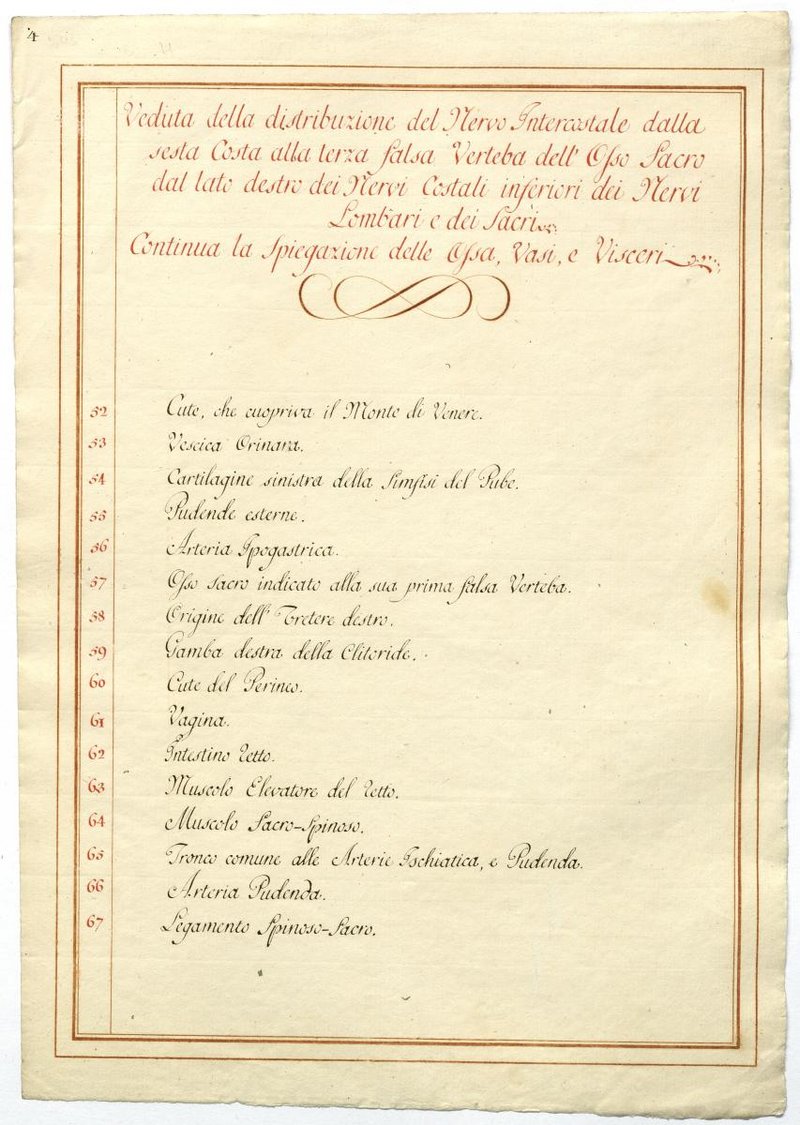 4
Veduta della distribuzione del Nervo Intercostale dalla
sesta Costa alla terza falsa Verteba dell' Osso Sacro
dal lato destro dei Nervi Costali inferiori dei Nervi
Lombari e dei Sacri
Continua la Spiegazione delle Ossa, Vasi, e Visceri
52 Cute, che cuopriva il Monte di Venere.
53 Vescica Orinara.
54 Cartilagine sinistra della Simfisi del Pube.
55 Pudende esterne.
56 Arteria Ipogastrica.
57 Osso sacro indicato alla sua prima falsa Verteba.
58 Origine dell' Uretere destro.
59 Gamba destra della Clitoride.
60 Cute del Perineo.
61 Vagina.
62 Intestino Retto.
63 Muscolo Elevatore del Retto.
64 Muscolo Sacro-Spinoso.
65 Tronco comune alle Arterie Ischiatica, e Pudenda.
66 Arteria Pudenda.
67 Legamento Spinoso-Sacro.